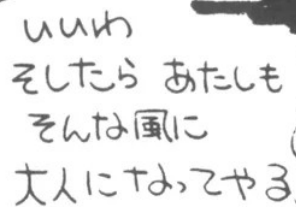 いいわ
そしたら あたしも
そんな風に
大人になってやる